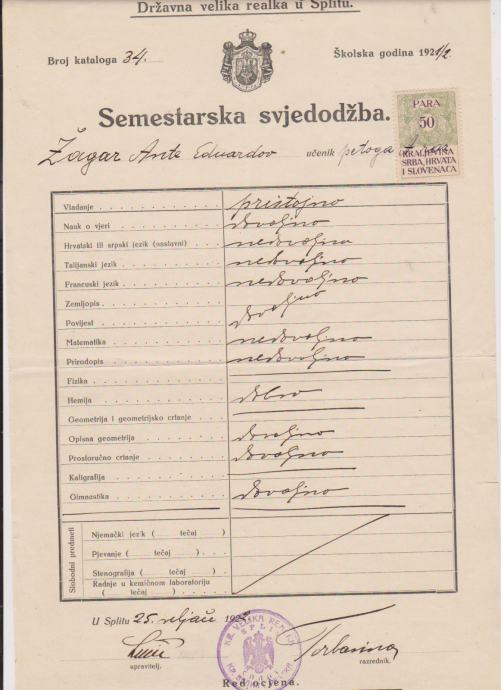 Državna velika realka u Splitu.
Broj kataloga 34.
Školska godina 1921/2
Semestarska svjedodžba.
PARA
50
KRALJEVINA
SRBA, HRVATA
I SLOVENACA
Žagar Ante Eduardov učenik petoga
Vladanje pristojno
Nauk o vjeri dovoljno
Hrvatski ili srpski jezik (nastavni) nedovoljno
Talijanski jezik nedovoljno
Francuski jezik nedovoljno
Zemljopis
Povijest dovoljno
Matematika nedovoljno
Prirodopis nedovoljno
Fizika
Hemija dobro
Geometrija i geometrijsko crtanje
Opisna geometrija dovoljno
Prostoručno crtanje dovoljno
Kaligrafija
Gimnastika dovoljno
Slobodni predmeti
Njemački jezik ( tečaj )
Pjevanje ( tečaj )
Stenografija ( tečaj )
Radnje u kemičnom laboratoriju
( tečaj )
U Splitu 25. veljače 192
VELIKA REALKA
SPLIT
upravitelj.
Torbarina
razrednik.
Red ocjena.